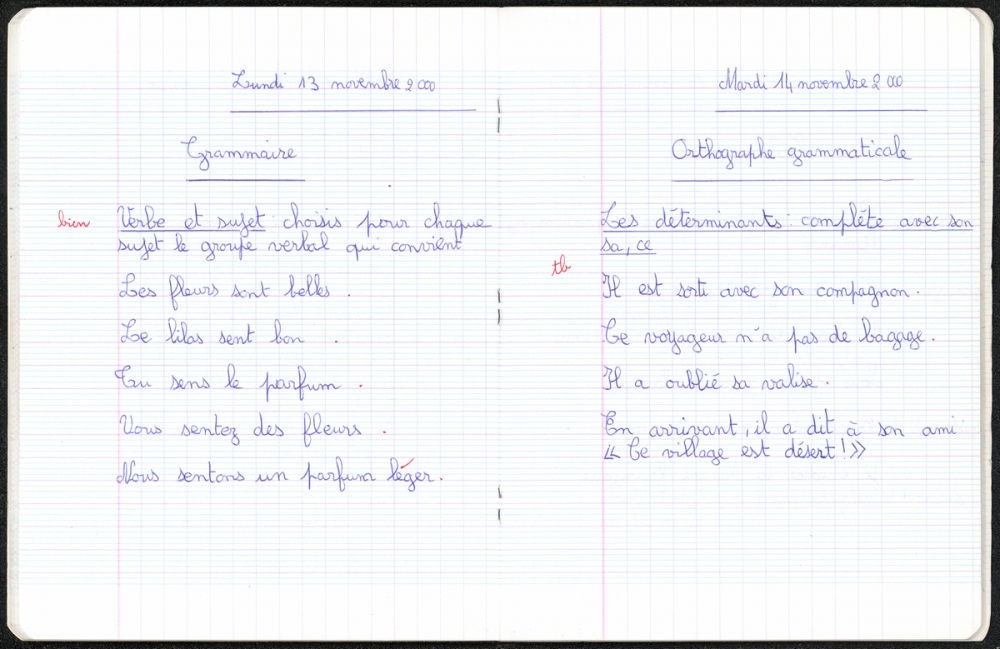 Lundi 13 novembre 2000
Grammaire
bien
Verbe et sujet : choisis pour chaque
sujet le groupe verbal qui convient
Les fleurs sont belles.
Le lilas sent bon.
Tu sens le parfum.
Vous sentez des fleurs.
Nous sentons un parfum léger.
Mardi 14 novembre 2000
Orthographe grammaticale
Les déterminants : complète avec son
sa, ce
tb
Il est sorti avec son compagnon.
Ce voyageur n'a pas de bagage.
Il a oublié sa valise.
En arrivant, il a dit à son ami
« Ce village est désert ! »